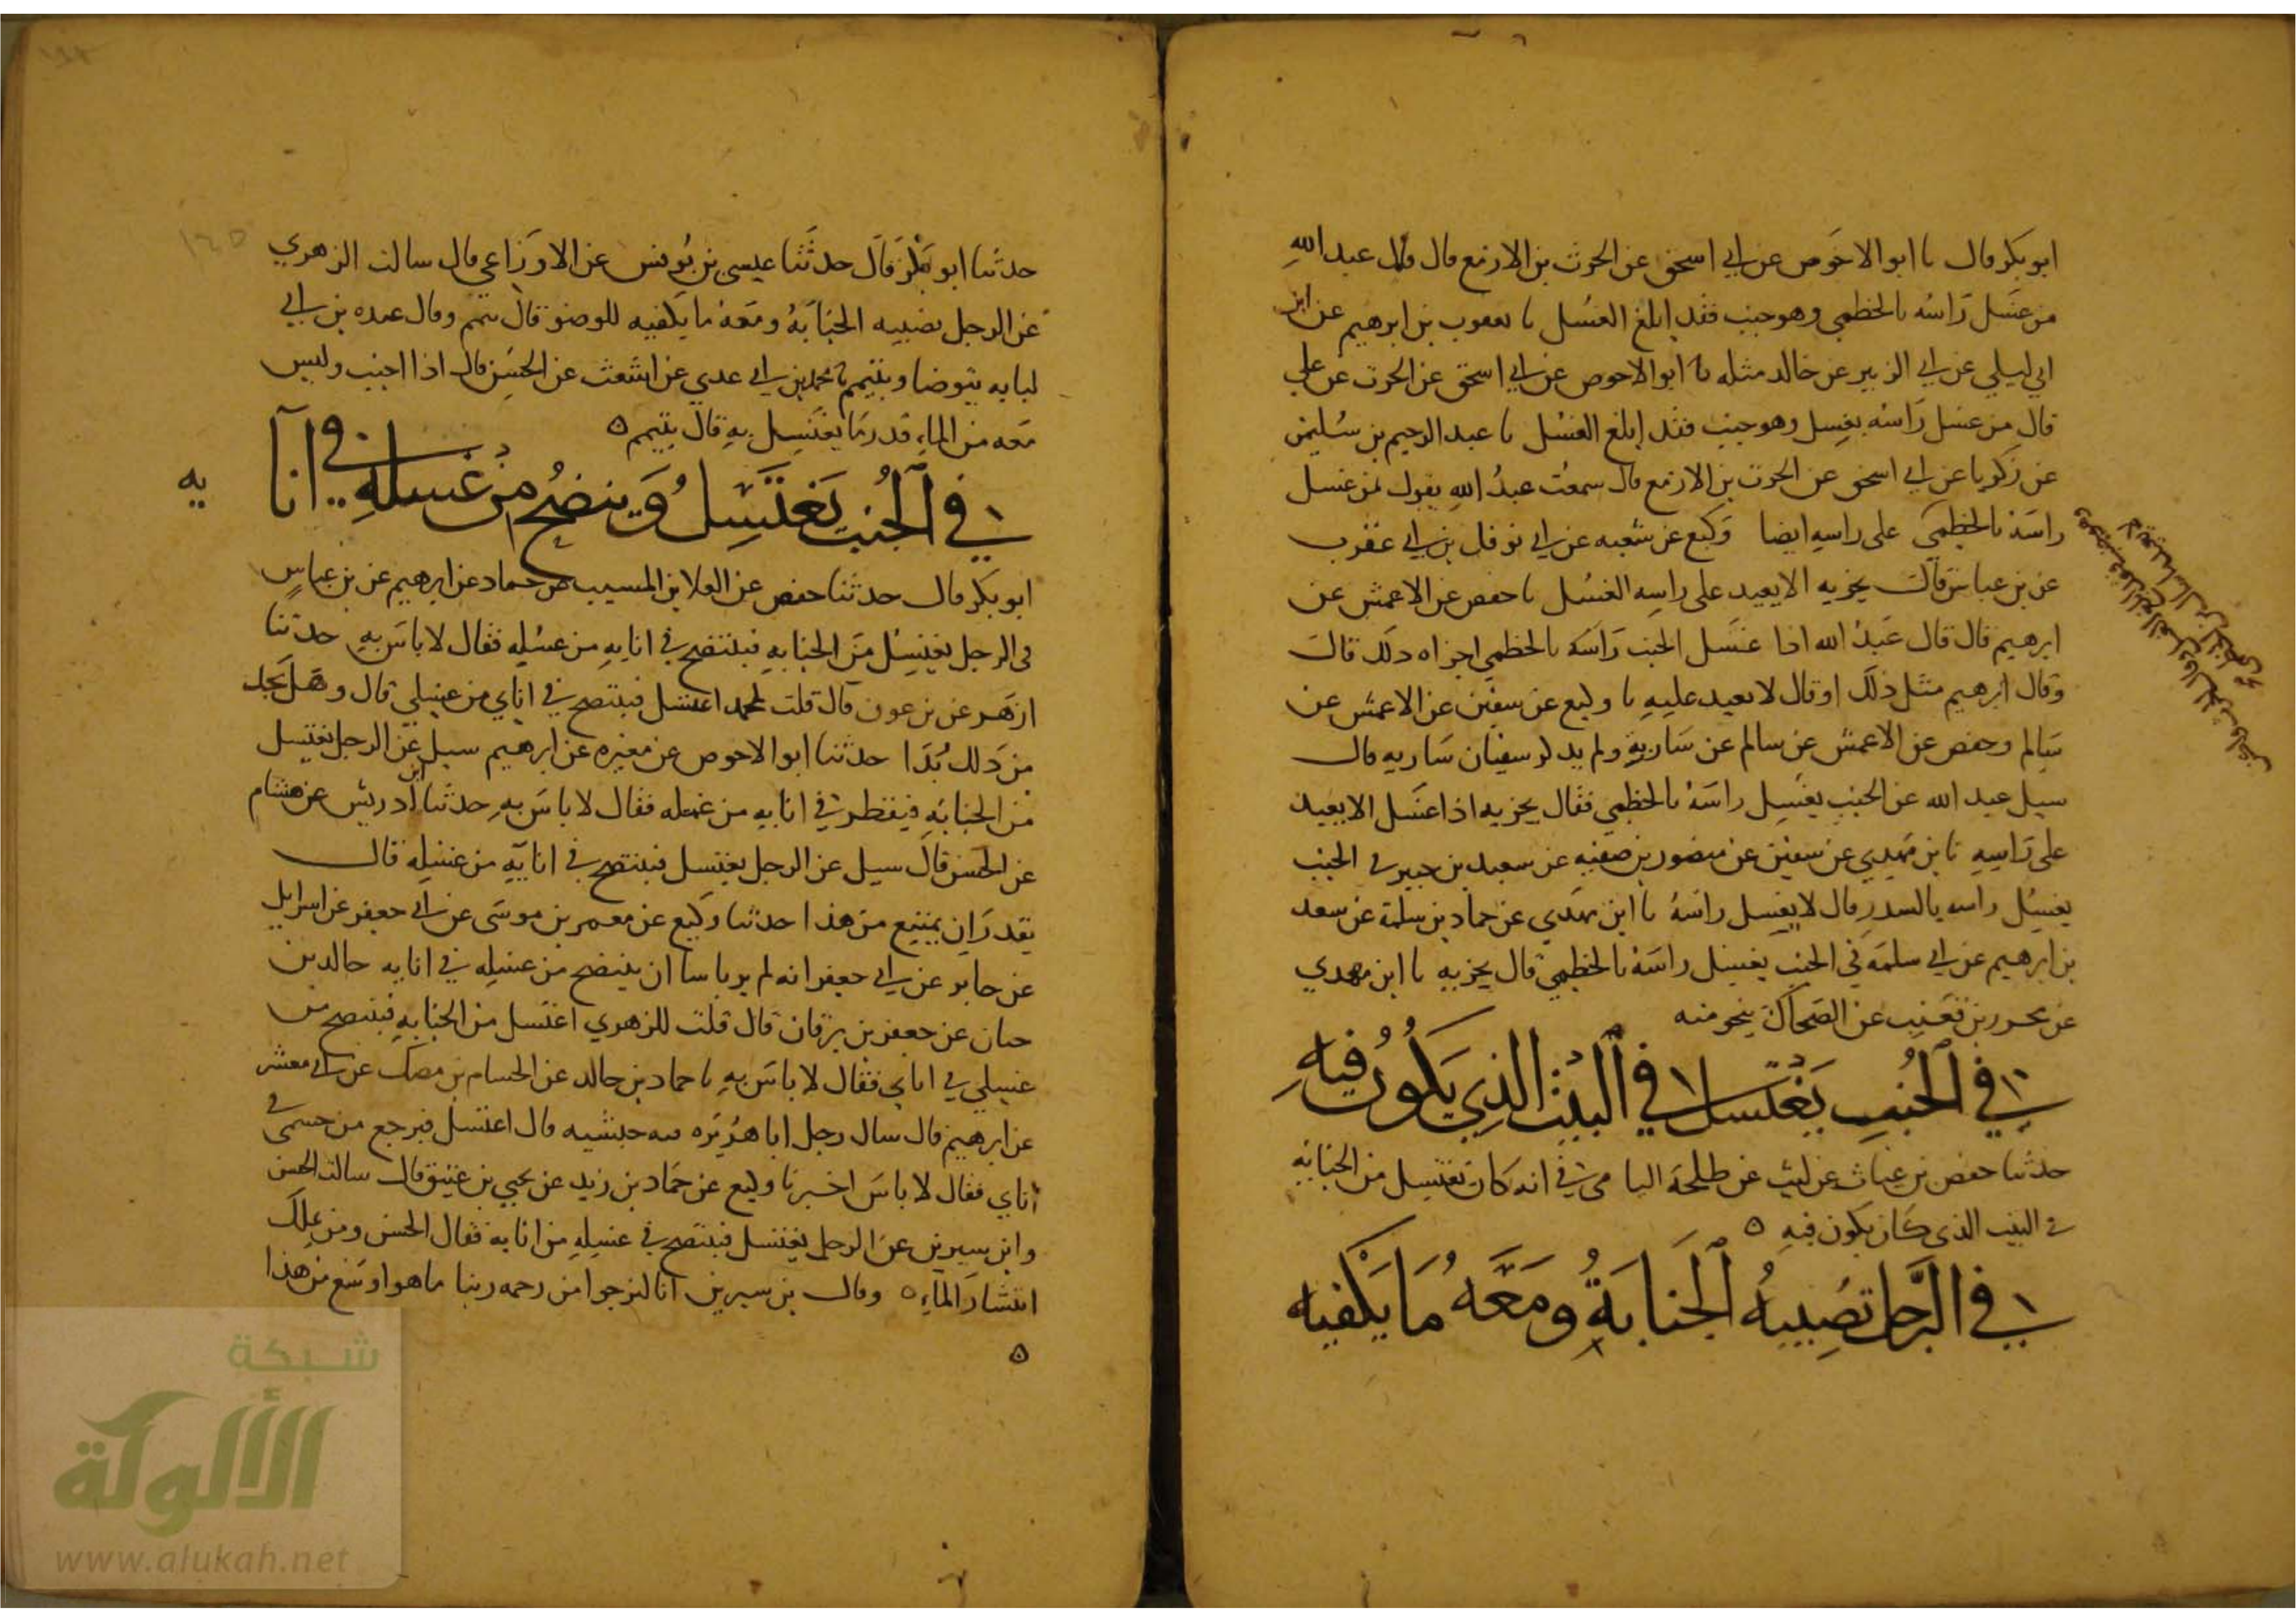 ابو بكر قال نا ابو الاحوص عن ابي اسحق عن الحرث بن الازمع قال قال عبد الله
من غسل راسه بالخطمي وهو جنب فقد ابلغ الغسل نا يعقوب بن ابرهيم عن ابن
ابي ليلي عن ابي الزبير عن خالد مثله نا ابو الاحوص عن ابي اسحق عن الحرث عن علي
قال من غسل راسه بغسل وهو جنب فقد ابلغ الغسل نا عبد الرحيم بن سليمن
عن زكريا عن ابي اسحق عن الحرث بن الازمع قال سمعت عبد الله يقول من غسل
راسه بالخطمي على راسه ايضا وكيع عن شعبه عن ابي نوفل بن ابي عقرب
عن بن عباس قال يجزيه الا يعيد على راسه الغسل نا حفص عن الاعمش عن
ابرهيم قال قال عبد الله اذا غسل الجنب راسه بالخطمي اجزاه ذلك قال
وقال ابرهيم مثل ذلك او قال لا يعيد عليه نا وكيع عن سفين عن الاعمش عن
سالم وحفص عن الاعمش عن سالم عن ساريه ولم يذكر سفيان ساريه قال
سيل عبد الله عن الجنب يغسل راسه بالخطمي فقال يجزيه اذا غسل الا يعيد
على راسه نا بن مهدي عن سفين عن منصور بن صفيه عن سعيد بن جبير في الجنب
يغسل راسه بالسدر قال لا يغسل راسه نا ابن مهدي عن حماد بن سلمة عن سعد
بن ابرهيم عن ابي سلمه في الجنب يغسل راسه بالخطمي قال يجزيه نا ابن مهدي
عن محرر بن قعنب عن الضحاك بنحو منه
في الجنب يغتسل في البيت الذي يكون فيه
حدثنا حفص بن غياث عن ليث عن طلحة اليامي في انه كان يغتسل من الجنابه
في البيت الذي كان يكون فيه ه
في الرجل تصيبه الجنابة ومعه ما يكفيه
حدثنا ابو بكر قال حدثنا عيسى بن يونس عن الاوزاعي قال سالت الزهري
عن الرجل تصيبه الجنابة ومعه ما يكفيه للوضو قال يتمم وقال عبده بن ابي
لبابه يتوضا ويتيمم نا محمد بن ابي عدي عن اشعث عن الحسن قال اذا اجنب وليس
معه من الماء قدر ما يغتسل به قال يتيمم ه
في الجنب يغتسل وينضح من غسله في انا
يه
ابو بكر قال حدثنا حفص عن العلا بن المسيب عن حماد عن ابرهيم عن بن عباس
في الرجل يغتسل من الجنابه فينتضح في انايه من غسله فقال لا باس به حدثنا
ازهر عن بن عون قال قلت لمحمد اغتسل فينتضح في اناي من غسلي قال وهل تجد
من ذلك بدا حدثنا ابو الاحوص عن مغيره عن ابرهيم سيل عن الرجل يغتسل
من الجنابه فيقطر في انايه من غسله فقال لا باس به حدثنا ابن ادريس عن هشام
عن الحسن قال سيل عن الرجل يغتسل فينتضح في انايه من غسله قال
يقدر ان يمتنع من هذا حدثنا وكيع عن معمر بن موسى عن ابي جعفر عن اسرايل
عن جابر عن ابي جعفر انه لم ير باسا ان ينتضح من غسله في انايه خالد بن
حيان عن جعفر بن برقان قال قلت للزهري اغتسل من الجنابه فينتضح من
غسلي في اناي فقال لا باس به نا حماد بن خالد عن الحسام بن مصك عن ابي معشر
عن ابرهيم قال سال رجل ابا هريره قال اغتسل فيرجع من جسمي في
اناي فقال لا باس اخبرنا وكيع عن حماد بن زيد عن يحيى بن عتيق قال سالت الحسن
وابن سيرين عن الرجل يغتسل فينتضح في غسله من انايه فقال الحسن ومن يملك
انتشار الماء ه وقال بن سيرين انا لنرجو من رحمه ربنا ما هو اوسع من هذا
ه
شبكة
الألوكة
www.alukah.net